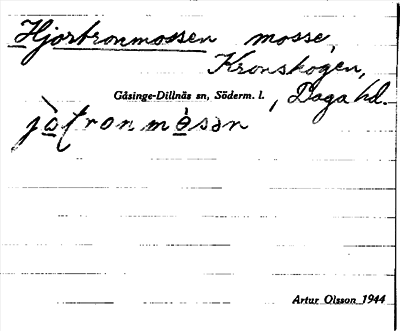 Hjortronmossen mosse,
Kronskogen,
Gåsinge-Dillnäs sn, Söderm. l. , Daga hd.
Artur Olsson 1944